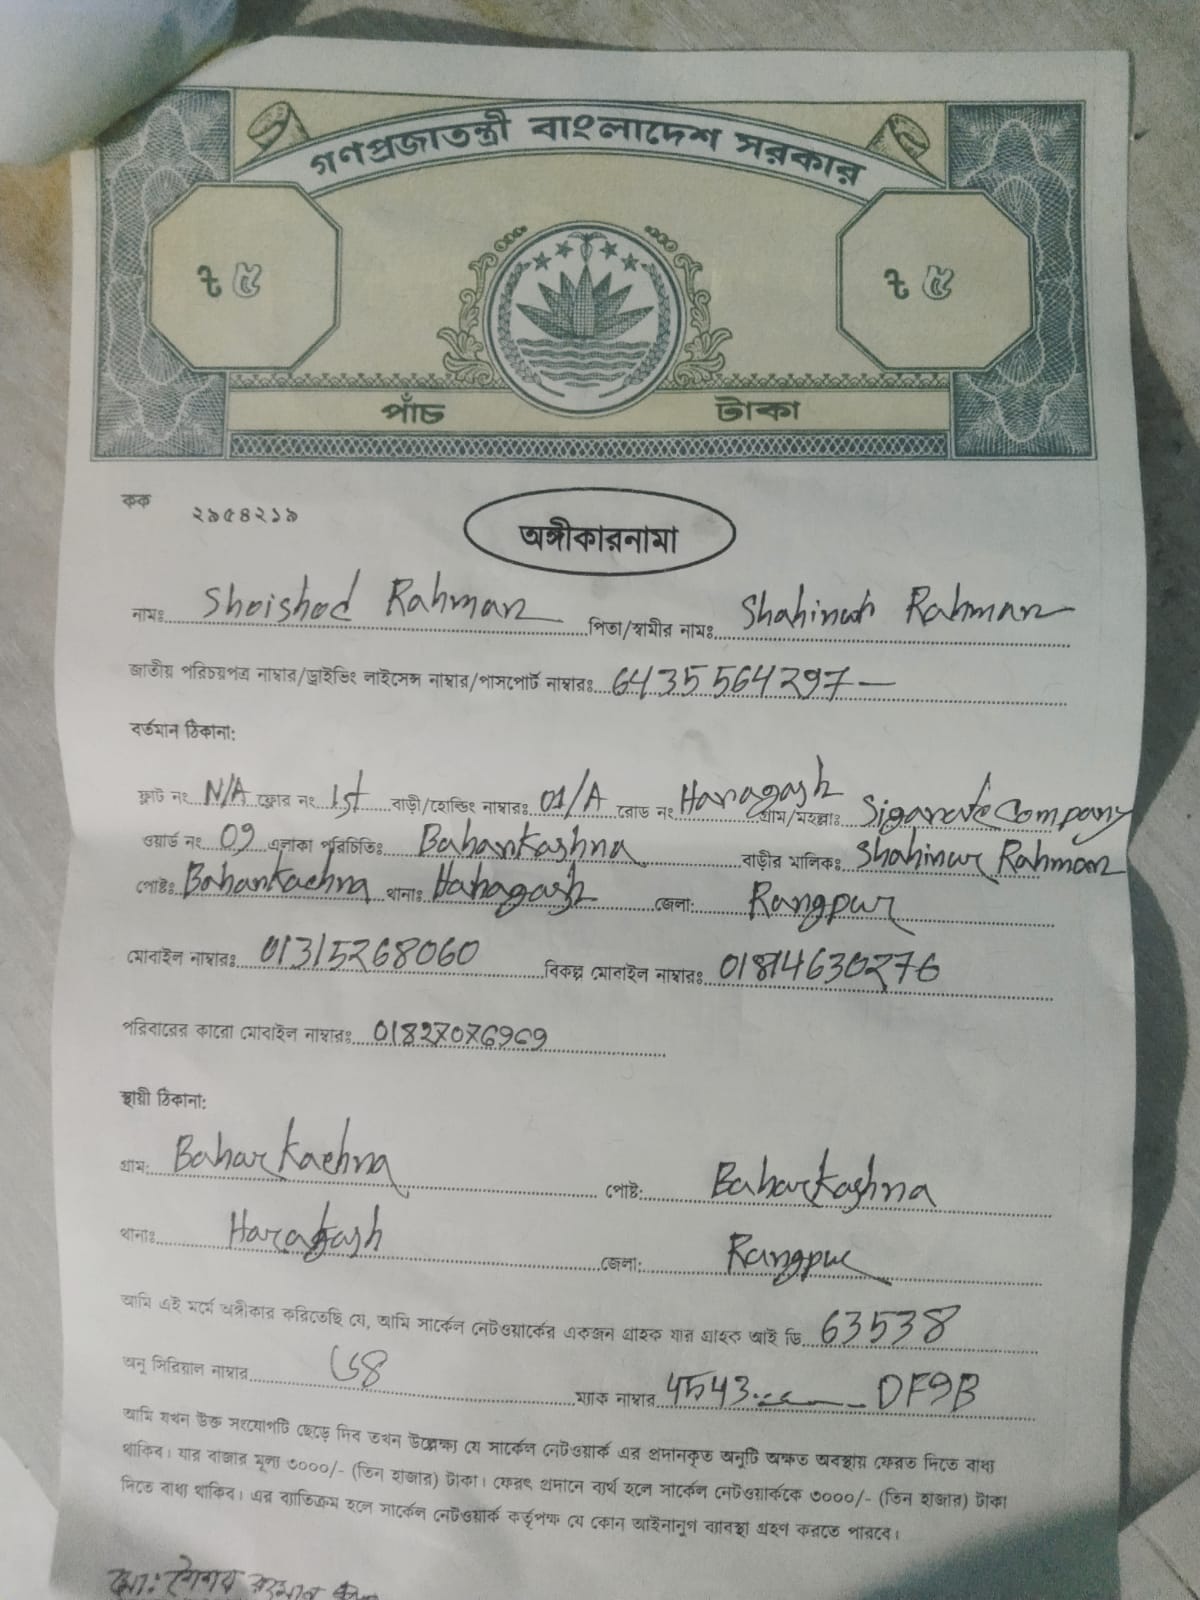 গণপ্রজাতন্ত্রী বাংলাদেশ সরকার
৳ ৫ ৳ ৫
পাঁচ টাকা
কক ২৯৫৪২১৯
অঙ্গীকারনামা
নামঃ Shoishod Rahman পিতা/স্বামীর নামঃ Rahman
জাতীয় পরিচয়পত্র নাম্বার/ড্রাইভিং লাইসেন্স নাম্বার/পাসপোর্ট নাম্বারঃ 6435564297
বর্তমান ঠিকানা:
ফ্লাট নং N/A ফ্লোর নং 1st বাড়ী/হোল্ডিং নাম্বারঃ 01/A রোড নং Haragash গ্রাম/মহল্লাঃ Sigarate Company
ওয়ার্ড নং 09 এলাকা পরিচিতিঃ Baharkashna বাড়ীর মালিকঃ Shahinur Rahman
পোষ্টঃ Baharkachna থানাঃ Haragash জেলা: Rangpur
মোবাইল নাম্বারঃ 01315268060 বিকল্প মোবাইল নাম্বারঃ
পরিবারের কারো মোবাইল নাম্বারঃ
স্থায়ী ঠিকানা:
গ্রাম: Baharkachna পোষ্ট: Baharkashna
থানাঃ Haragash জেলা: Rangpur
আমি এই মর্মে অঙ্গীকার করিতেছি যে, আমি সার্কেল নেটওয়ার্কের একজন গ্রাহক যার গ্রাহক আই ডি 63538
অনু সিরিয়াল নাম্বার ম্যাক নাম্বার 4543 DF9B
আমি যখন উক্ত সংযোগটি ছেড়ে দিব তখন উল্লেক্ষ্য যে সার্কেল নেটওয়ার্ক এর প্রদানকৃত অনুটি অক্ষত অবস্থায় ফেরত দিতে বাধ্য
থাকিব। যার বাজার মূল্য ৩০০০/- (তিন হাজার) টাকা। ফেরৎ প্রদানে ব্যর্থ হলে সার্কেল নেটওয়ার্ককে ৩০০০/- (তিন হাজার) টাকা
দিতে বাধ্য থাকিব। এর ব্যাতিক্রম হলে সার্কেল নেটওয়ার্ক কর্তৃপক্ষ যে কোন আইনানুগ ব্যাবস্থা গ্রহণ করতে পারবে।
মো: রহমান